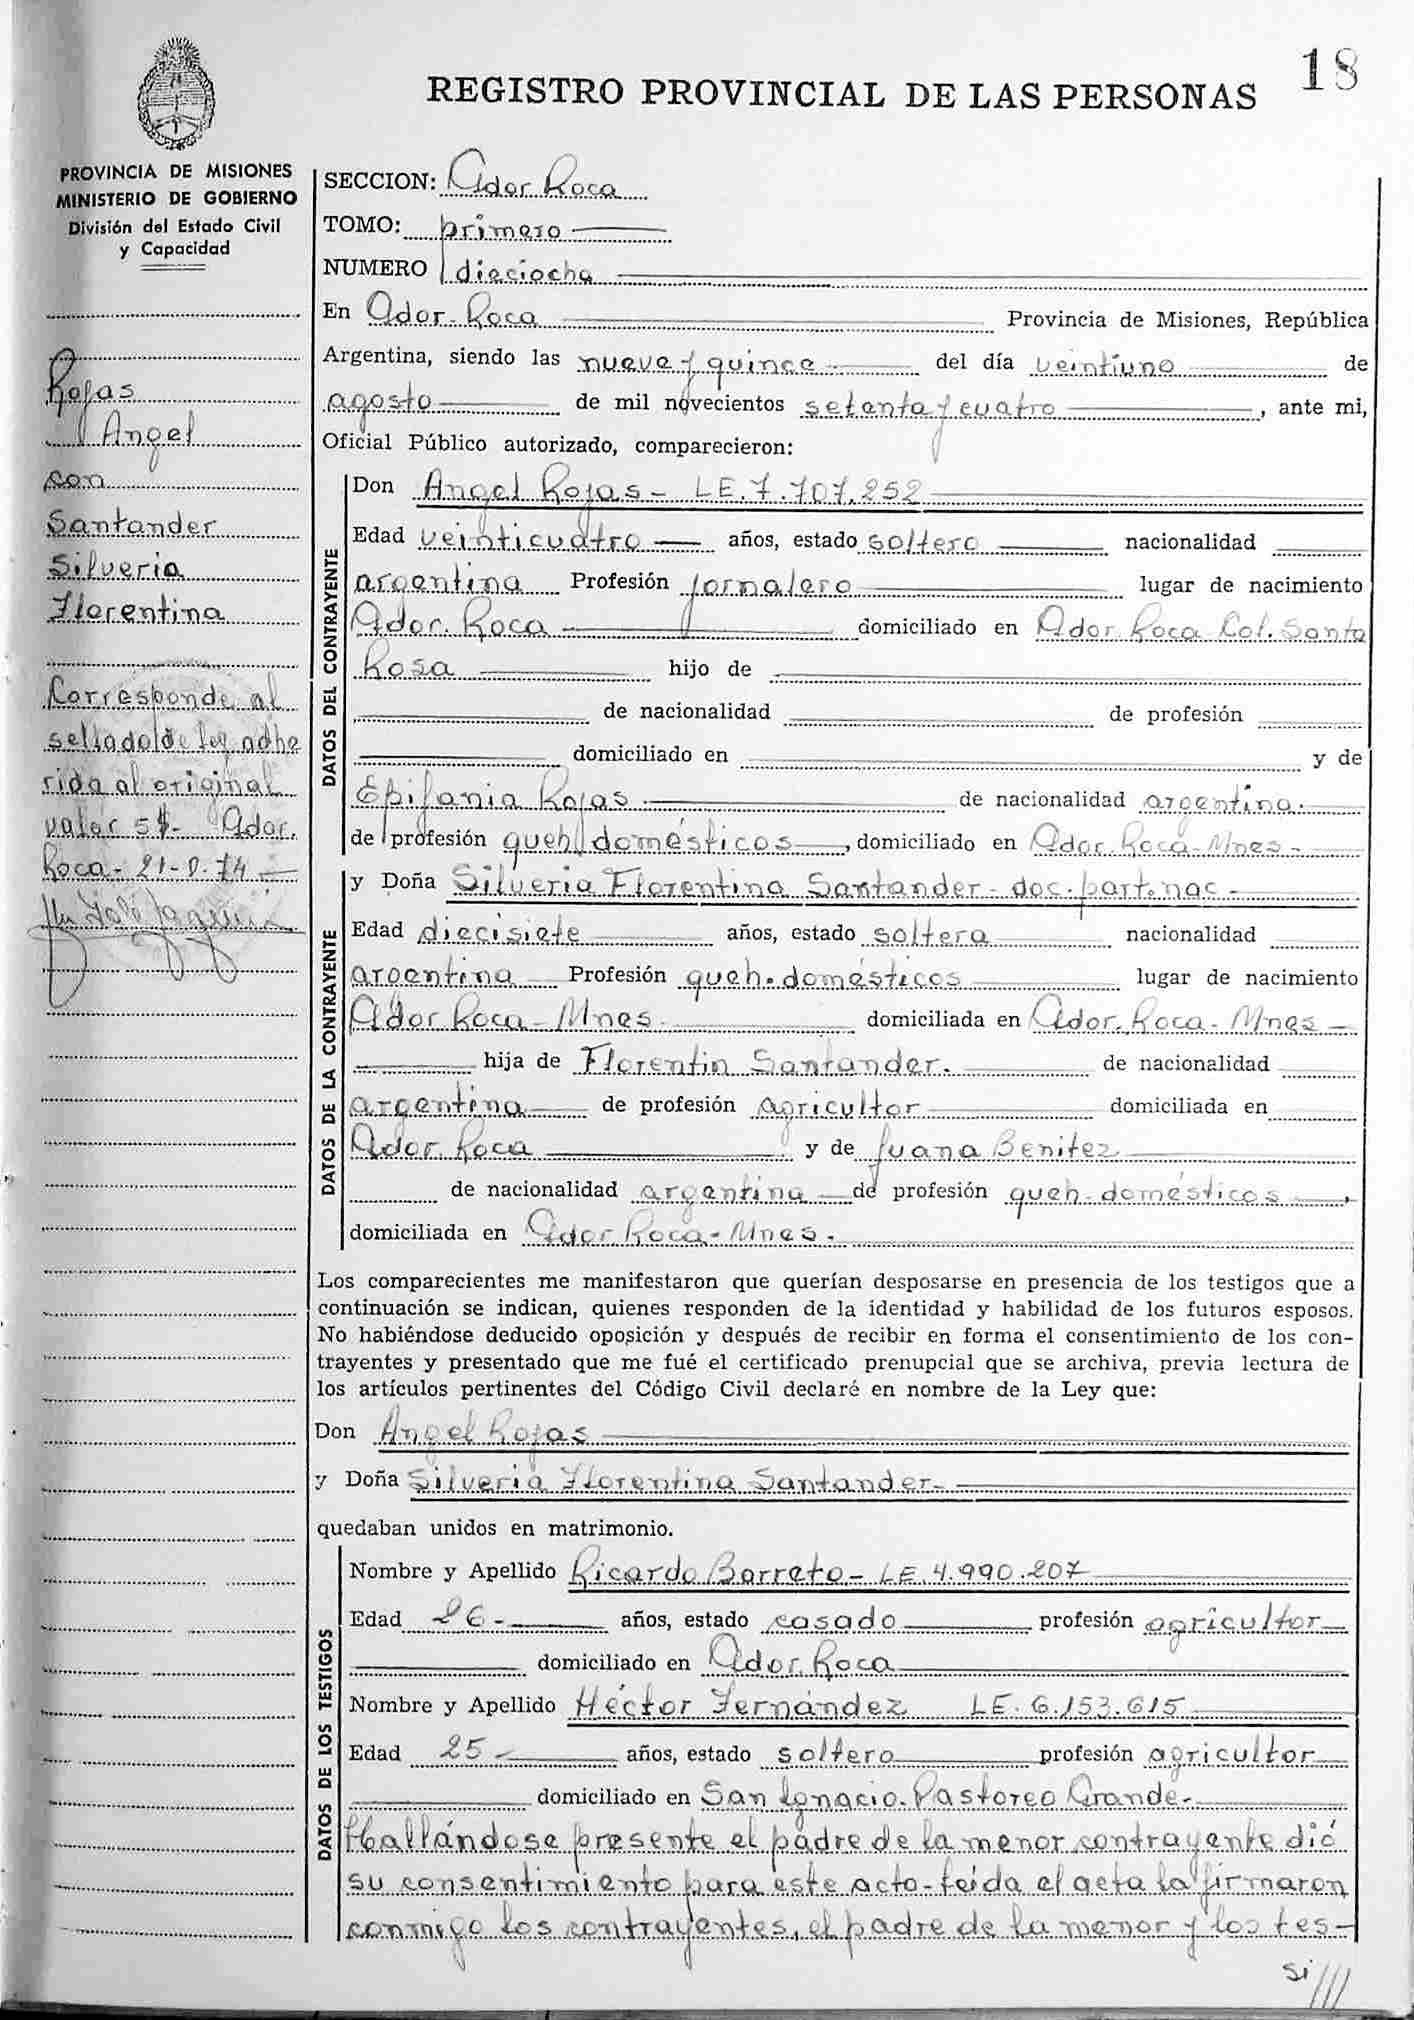 18
REGISTRO PROVINCIAL DE LAS PERSONAS
PROVINCIA DE MISIONES
MINISTERIO DE GOBIERNO
División del Estado Civil
y Capacidad
Rojas
Angel
con
Santander
Silveria
Florentina
Corresponde al
sellado de ley adhe
rida al original
valor 5$- Ador.
Roca- 21-8-74
SECCION: Ador Roca
TOMO: primero
NUMERO dieciocho
En Ador. Roca Provincia de Misiones, República
Argentina, siendo las nueve y quince del día veintiuno de
agosto de mil novecientos setenta y cuatro, ante mi,
Oficial Público autorizado, comparecieron:
DATOS DEL CONTRAYENTE
Don Angel Rojas - LE. 7.707.252
Edad veinticuatro años, estado soltero nacionalidad
argentina Profesión jornalero lugar de nacimiento
Ador. Roca domiciliado en Ador. Roca Col. Santa
Rosa hijo de
de nacionalidad de profesión
domiciliado en y de
Epifania Rojas de nacionalidad argentina.
de profesión queh. domésticos, domiciliado en Ador. Roca - Mnes -
DATOS DE LA CONTRAYENTE
y Doña Silveria Florentina Santander - doc. part. nac -
Edad diecisiete años, estado soltera nacionalidad
argentina Profesión queh. domésticos lugar de nacimiento
Ador Roca - Mnes. domiciliada en Ador. Roca - Mnes -
hija de Florentin Santander. de nacionalidad
argentina de profesión agricultor domiciliada en
Ador. Roca y de Juana Benitez
de nacionalidad argentina de profesión queh. domésticos,
domiciliada en Ador Roca - Mnes.
Los comparecientes me manifestaron que querían desposarse en presencia de los testigos que a
continuación se indican, quienes responden de la identidad y habilidad de los futuros esposos.
No habiéndose deducido oposición y después de recibir en forma el consentimiento de los con-
trayentes y presentado que me fué el certificado prenupcial que se archiva, previa lectura de
los artículos pertinentes del Código Civil declaré en nombre de la Ley que:
Don Angel Rojas
y Doña Silveria Florentina Santander.
quedaban unidos en matrimonio.
DATOS DE LOS TESTIGOS
Nombre y Apellido Ricardo Barreto - LE. 4.990.207
Edad 26 - años, estado casado profesión agricultor
domiciliado en Ador. Roca
Nombre y Apellido Héctor Fernández LE. 6.153.615
Edad 25 - años, estado soltero profesión agricultor
domiciliado en San Ignacio. Pastoreo Grande.
Hallándose presente el padre de la menor contrayente dió
su consentimiento para este acto - leída el acta la firmaron
conmigo los contrayentes, el padre de la menor y los tes-
si///